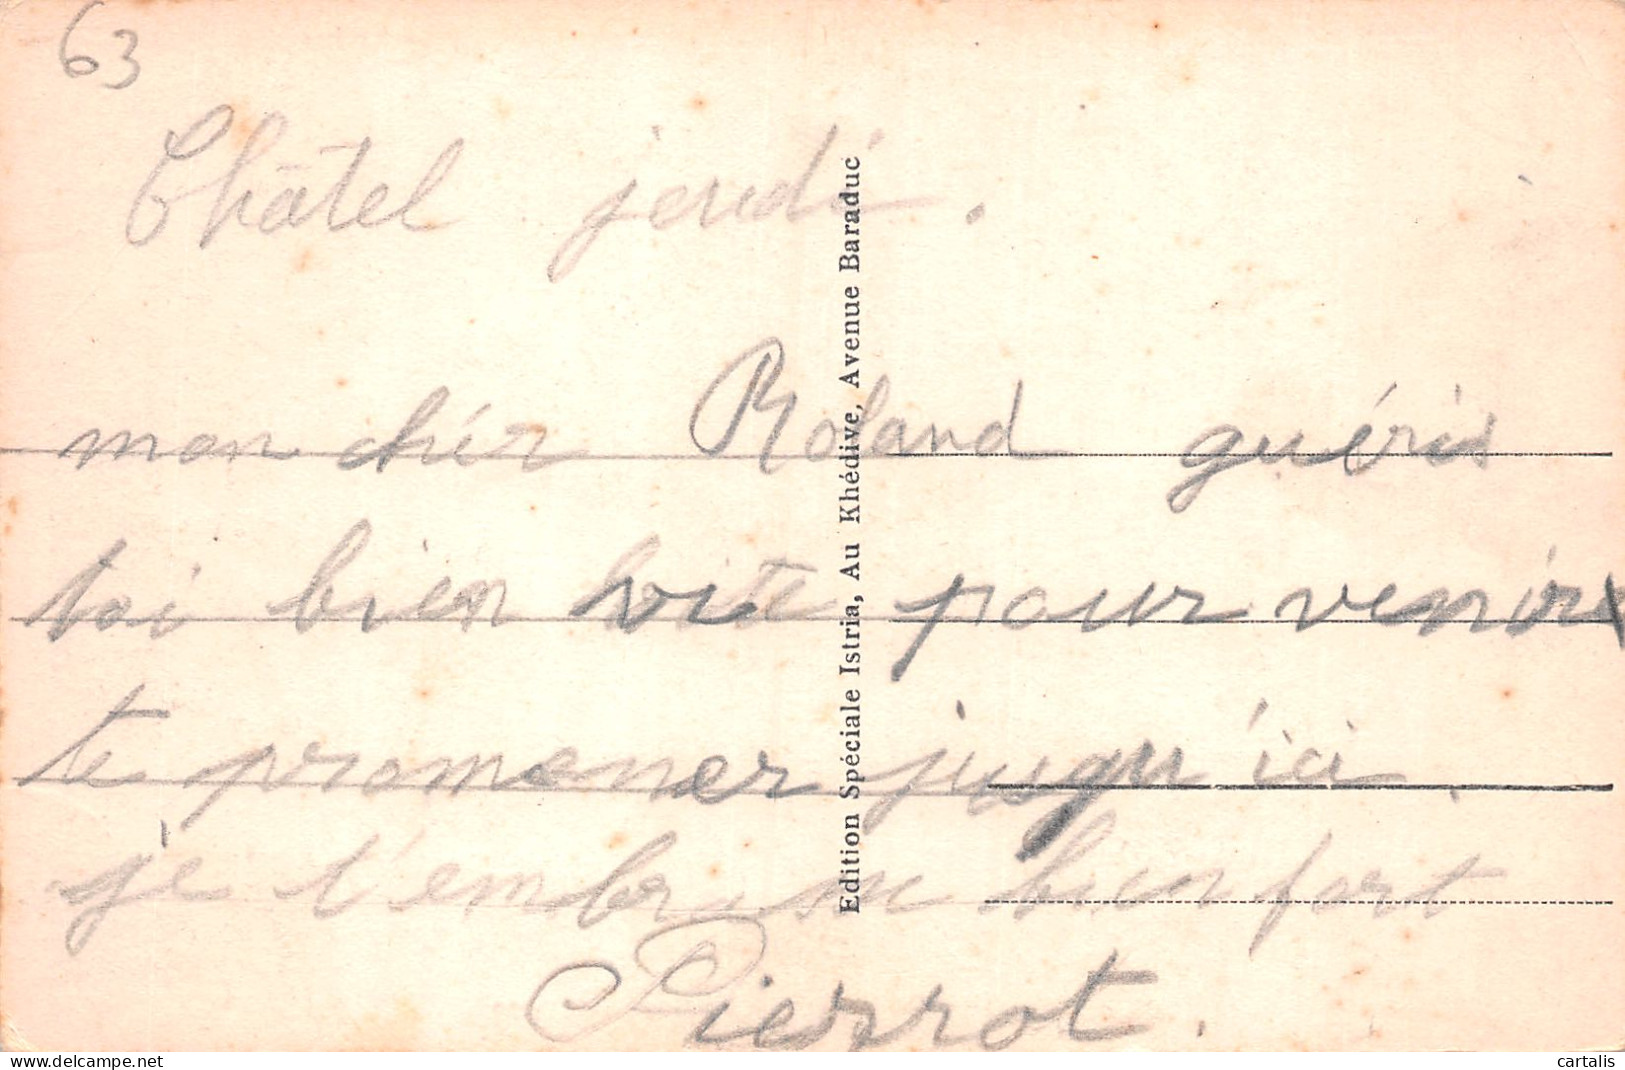 63
Châtel jeudi.
mon chér Roland guéris
toi bien vite pour venir
te promener jusqu'ici.
je t'embrasse bien fort
Pierrot.
Edition Spéciale Istria, Au Khédive, Avenue Baraduc
delcampe.net
cartalis